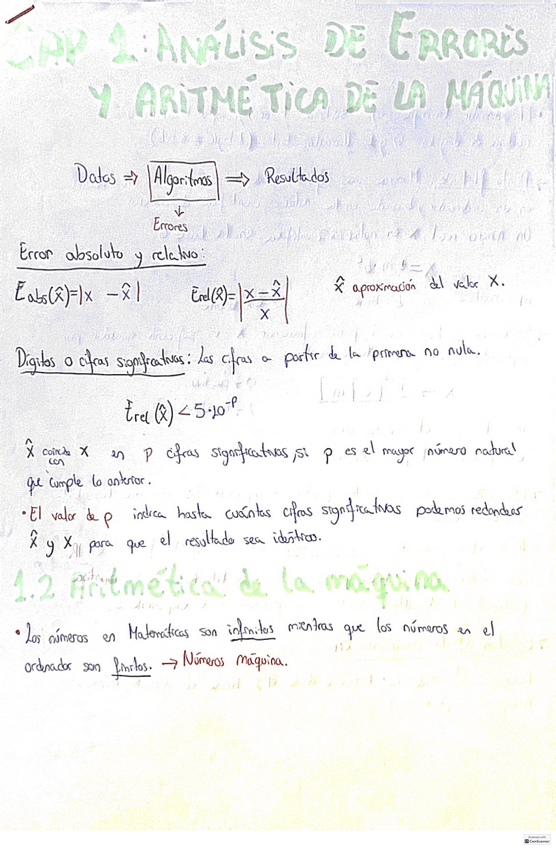 CAP 1: ANÁLISIS DE ERRORES
Y ARITMÉTICA DE LA MÁQUINA
Datos ⇒ Algoritmos ⇒ Resultados
↓
Errores
Error absoluto y relativo:
Eabs(x̂)=|x - x̂| Erel(x̂)=|(x - x̂)/x| x̂ aproximación del valor x.
Dígitos o cifras significativas: Las cifras a partir de la primera no nula.
Erel(x̂) < 5·10^-p
x̂ coincide con x en p cifras significativas, si p es el mayor número natural
que cumple lo anterior.
• El valor de p indica hasta cuántas cifras significativas podemos redondear
x̂ y x para que el resultado sea idéntico.
1.2 Aritmética de la máquina
• Los números en Matemáticas son infinitos mientras que los números en el
ordenador son finitos. → Números máquina.
CamScanner